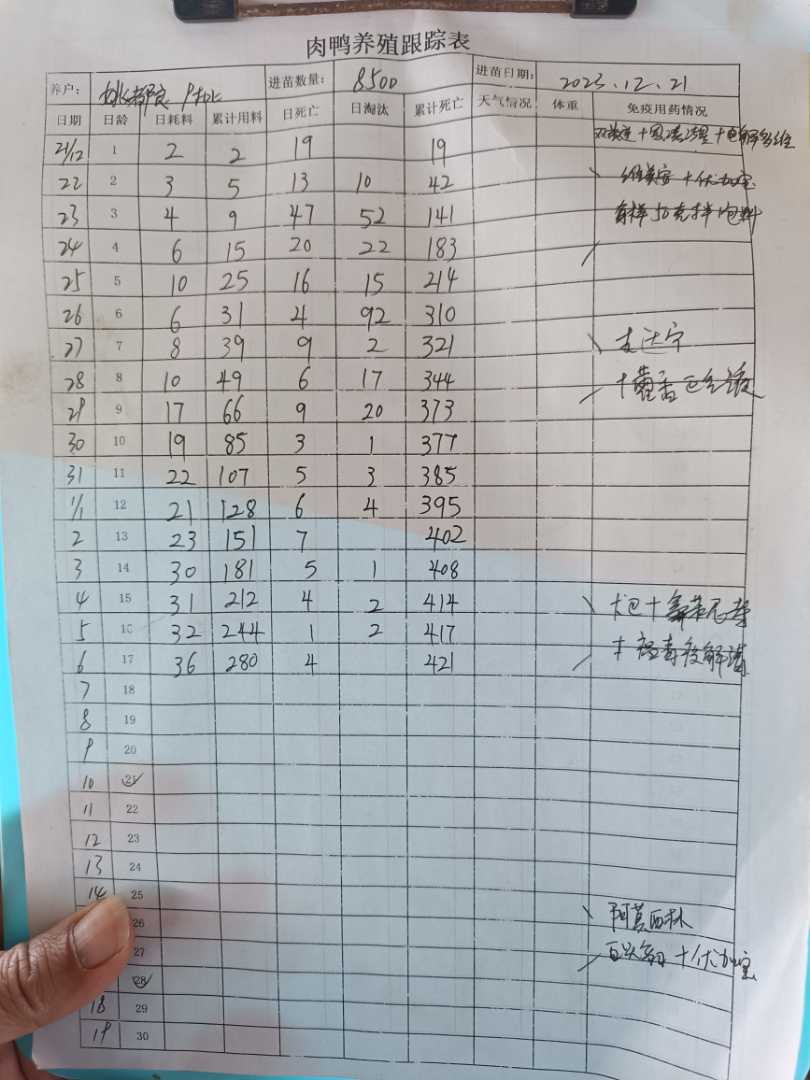 肉鸭养殖跟踪表
养户: 进苗数量: 8500 进苗日期: 2023.12.21
日期 日龄 日耗料 累计用料 日死亡 日淘汰 累计死亡 天气情况 体重 免疫用药情况
21/12 1 2 2 19 19
22 2 3 5 13 10 42
23 3 4 9 47 52 141
24 4 6 15 20 22 183
25 5 10 25 16 15 214
26 6 6 31 4 92 310
27 7 8 39 9 2 321
28 8 10 49 6 17 344
29 9 17 66 9 20 373
30 10 19 85 3 1 377
31 11 22 107 5 3 385
1/1 12 21 128 6 4 395
2 13 23 151 7 402
3 14 30 181 5 1 408
4 15 31 212 4 2 414
5 16 32 244 1 2 417
6 17 36 280 4 421
7 18
8 19
9 20
10 21
11 22
12 23
13 24
14 25
26 阿莫西林
27
28
18 29
19 30